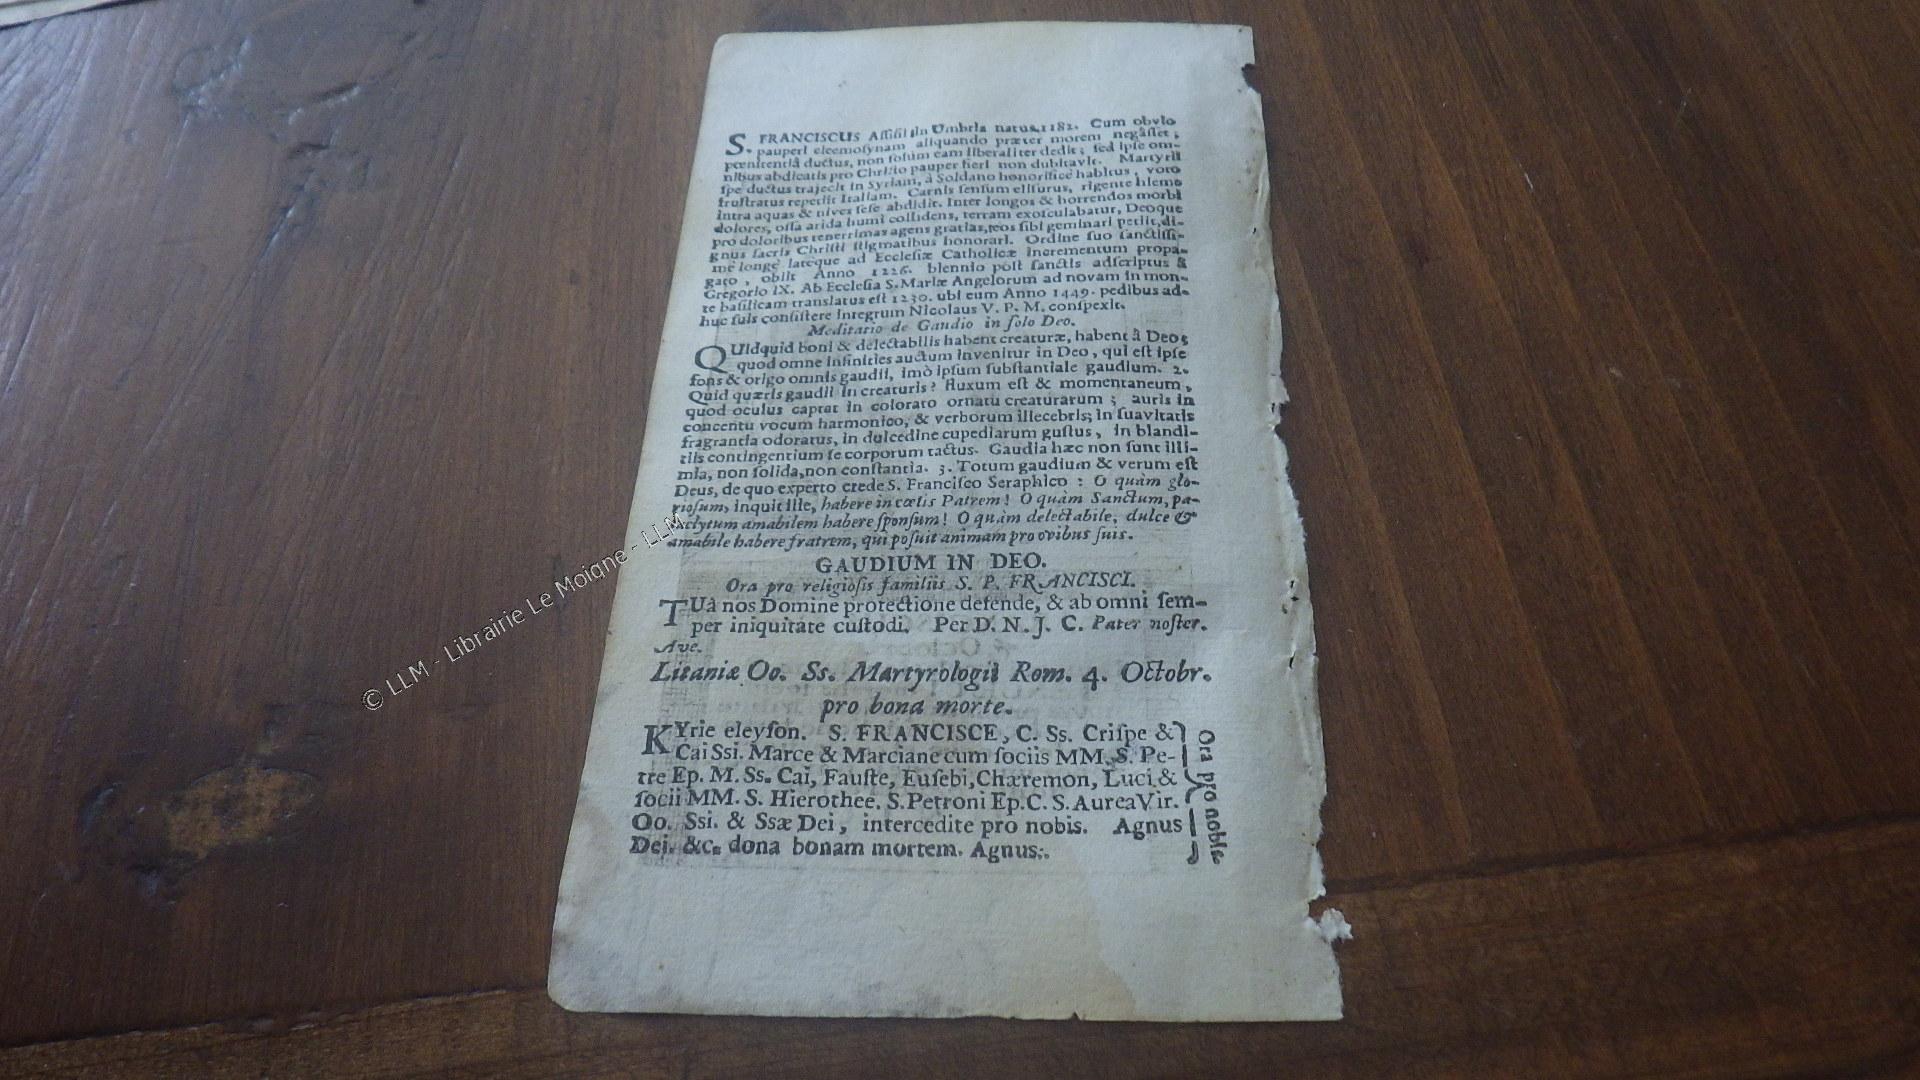 S. FRANCISCUS Aſſiſii in Umbria natus 1182. Cum obvio
pauperi eleemoſynam aliquando præter morem negâſſet,
pœnitentiâ ductus, non ſolùm eam liberaliter dedit; ſed ipſe om-
nibus abdicatis pro Chriſto pauper fieri non dubitavit. Martyrii
ſpe ductus trajecit in Syriam, à Soldano honorificè habitus, voto
fruſtratus repetiit Italiam. Carnis ſenſum eliſurus, rigente hieme
intra aquas & nives ſeſe abdidit. Inter longos & horrendos morbi
dolores, oſſa arida humi collidens, terram exoſculabatur, Deoque
pro doloribus tenerrimas agens gratias, eos ſibi geminari petiit, di-
gnus ſacris Chriſti ſtigmatibus honorari. Ordine ſuo ſanctiſſi-
mè longè latèque ad Eccleſiæ Catholicæ incrementum propa-
gato, obiit Anno 1226. biennio pòſt ſanctis adſcriptus à
Gregorio IX. Ab Eccleſia S. Mariæ Angelorum ad novam in mon-
te baſilicam translatus eſt 1230. ubi eum Anno 1449. pedibus ad-
huc ſuis conſiſtere integrum Nicolaus V. P. M. conſpexit.
Meditatio de Gaudio in ſolo Deo.
QUidquid boni & delectabilis habent creaturæ, habent à Deo;
quod omne infinities auctum invenitur in Deo, qui eſt ipſe
fons & origo omnis gaudii, imò ipſum ſubſtantiale gaudium. 2.
Quid quæris gaudii in creaturis? fluxum eſt & momentaneum,
quod oculus captat in colorato ornatu creaturarum; auris in
concentu vocum harmonico, & verborum illecebris; in ſuavitatis
fragrantia odoratus, in dulcedine cupediarum guſtus, in blandi-
tiis contingentium ſe corporum tactus. Gaudia hæc non ſunt illi-
mia, non ſolida, non conſtantia. 3. Totum gaudium & verum eſt
Deus, de quo experto crede S. Franciſco Seraphico: O quàm glo-
rioſum, inquit ille, habere in cœlis Patrem! O quàm Sanctum, pa-
raclytum amabilem habere ſponſum! O quàm delectabile, dulce &
amabile habere fratrem, qui poſuit animam pro ovibus ſuis.
GAUDIUM IN DEO.
Ora pro religioſis familiis S. P. FRANCISCI.
TUâ nos Domine protectione defende, & ab omni ſem-
per iniquitate cuſtodi. Per D. N. J. C. Pater noſter.
Ave.
Litaniæ Oo. Ss. Martyrologii Rom. 4. Octobr.
pro bona morte.
KYrie eleyſon. S. FRANCISCE, C. Ss. Criſpe &
Cai Ssi. Marce & Marciane cum ſociis MM. S. Pe-
tre Ep. M. Ss. Cai, Fauſte, Euſebi, Chæremon, Luci &
ſocii MM. S. Hierothee. S. Petroni Ep. C. S. Aurea Vir.
Oo. Ssi. & Ssæ Dei, intercedite pro nobis. Agnus
Dei. &c. dona bonam mortem. Agnus.
Ora pro nobis.
© LLM - Librairie Le Moigne - LLM